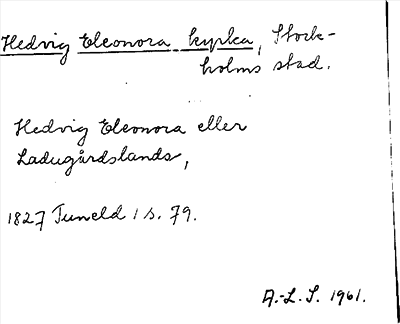 Hedvig Eleonora kyrka, Stock-
holms stad.
Hedvig Eleonora eller
Ladugårdslands,
1827 Tuneld 1 s. 79.
A.-L. S. 1961.